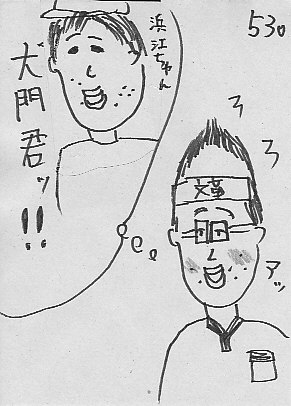 530
浜江ちゃん
犬門君ッ!!
ろ
ろ
文革
アッ